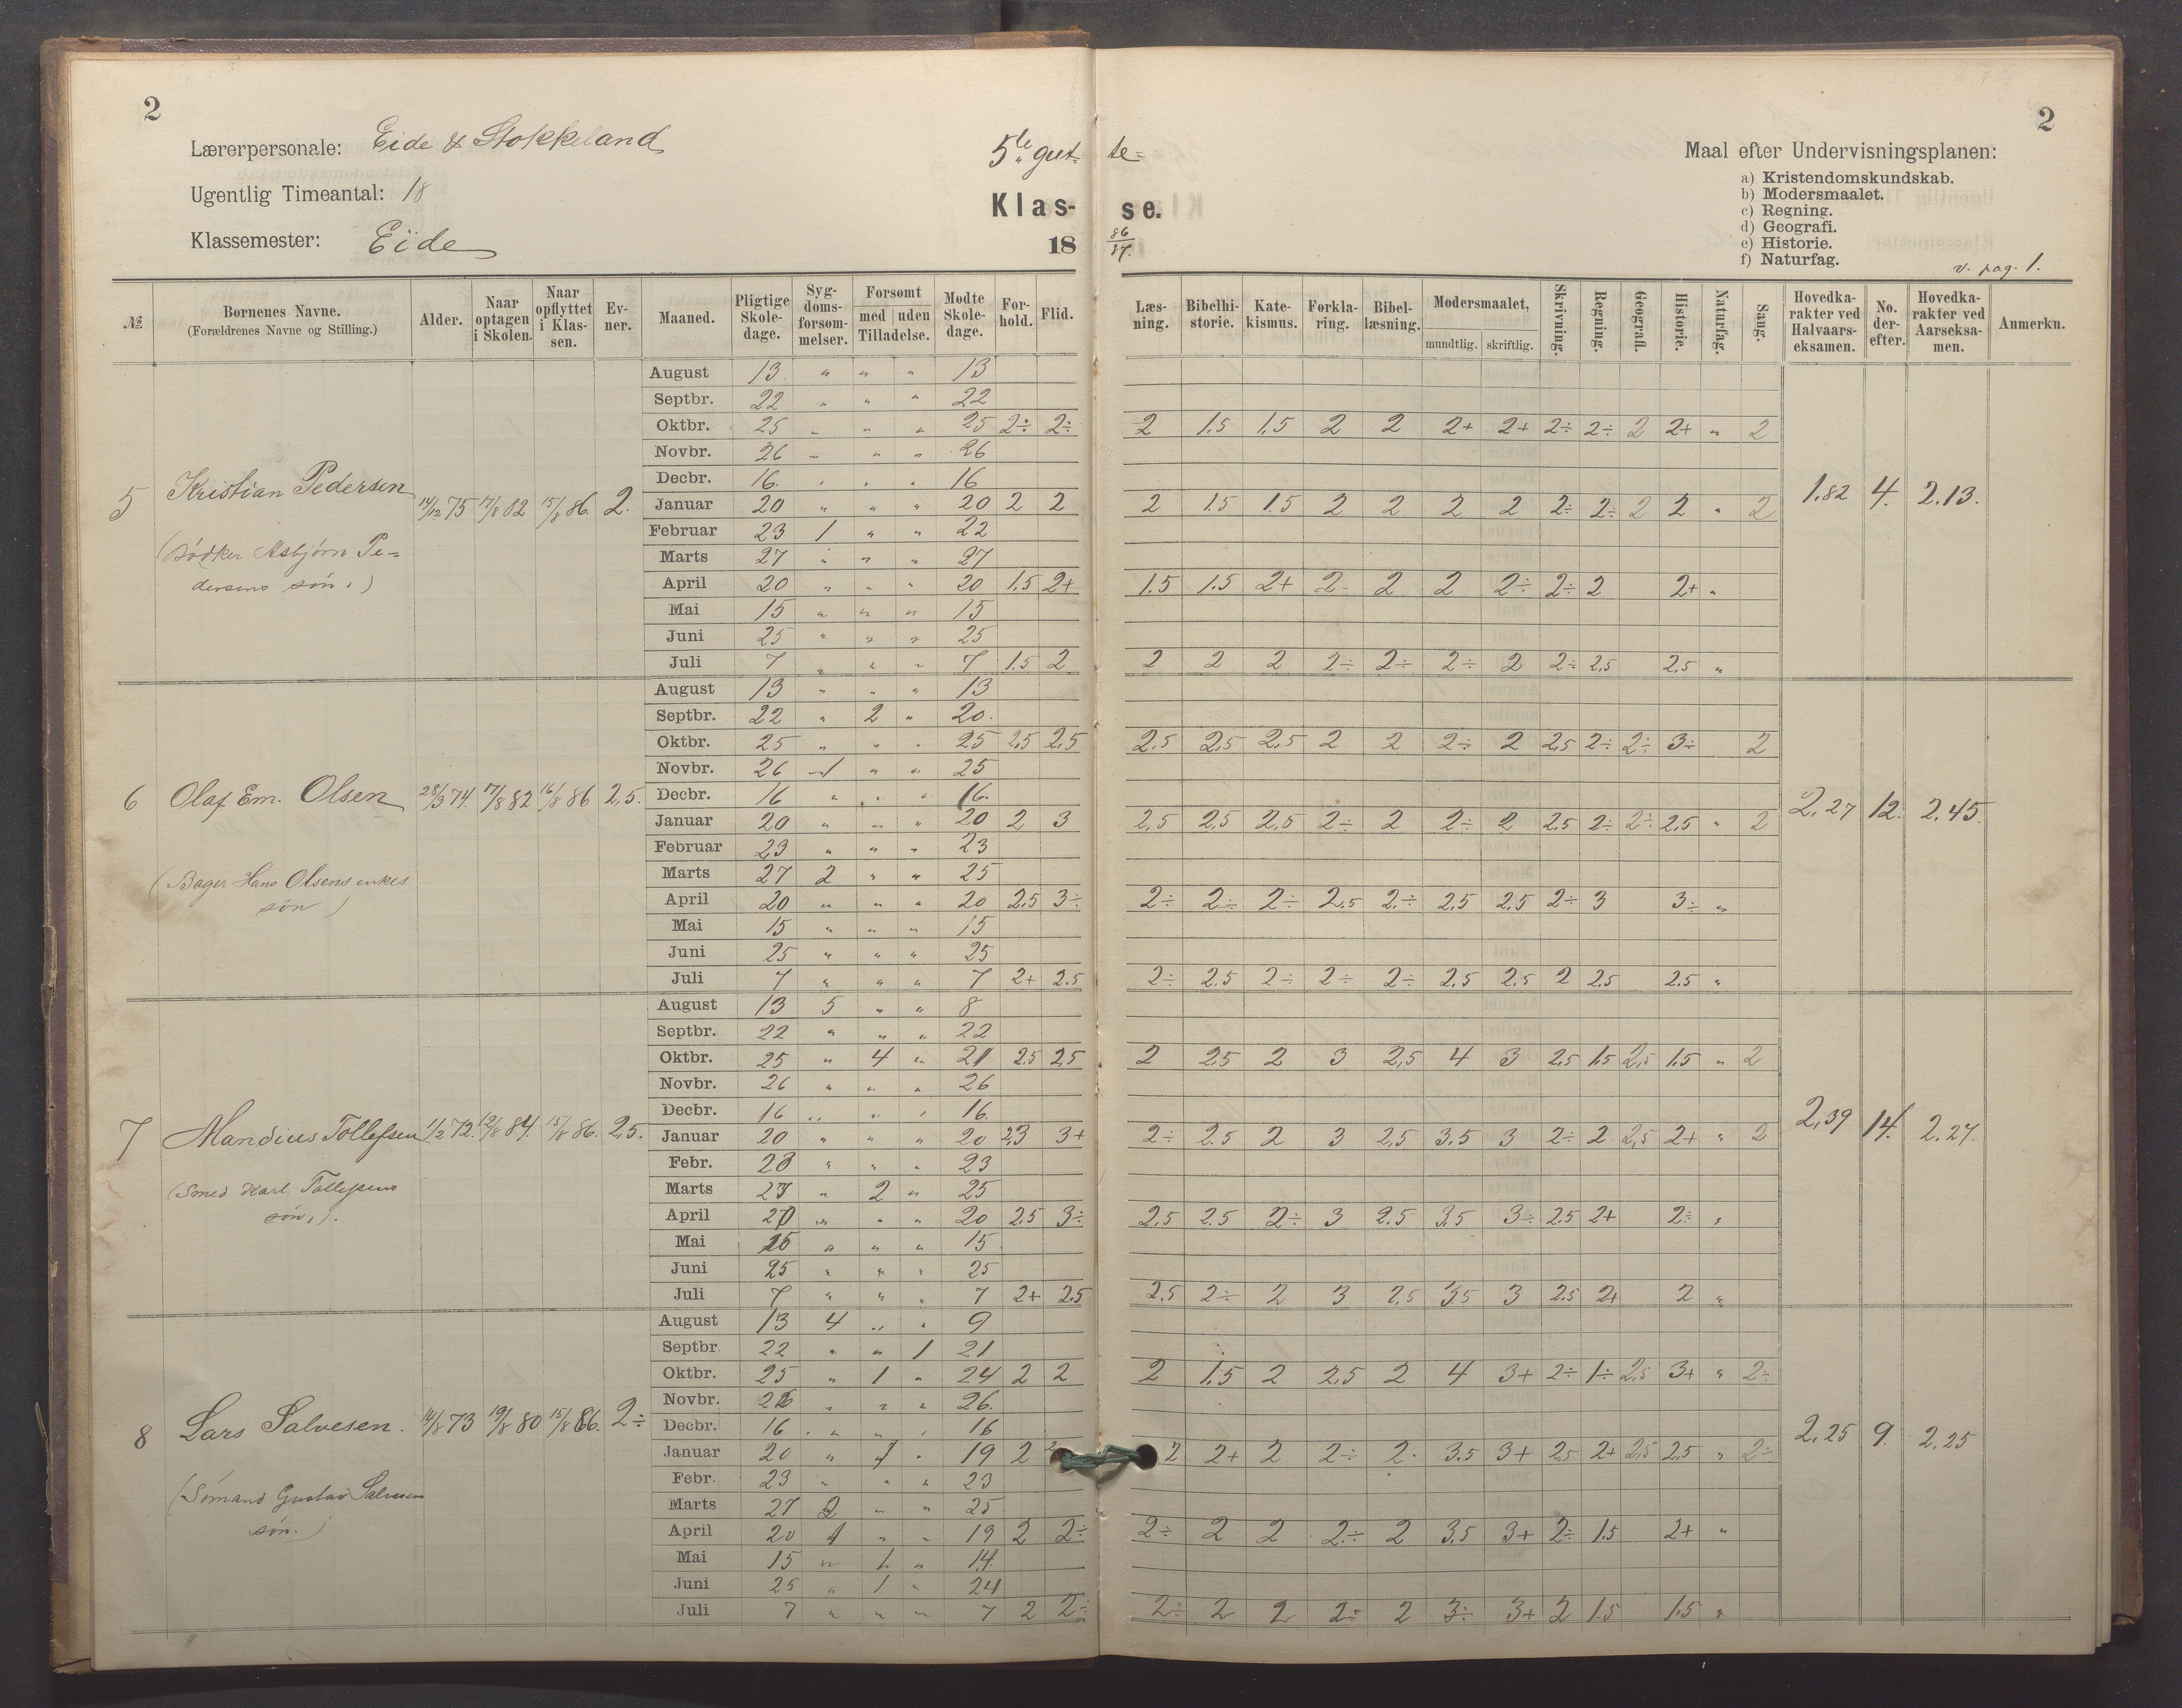 2
Lærerpersonale: Eide & Stokkeland
Ugentlig Timeantal: 18
Klassemester: Eide
5te gut- te-
Klas- se.
18 86/87.
2
Maal efter Undervisningsplanen:
a) Kristendomskundskab.
b) Modersmaalet.
c) Regning.
d) Geografi.
e) Historie.
f) Naturfag.
v. pag. 1.
№ Børnenes Navne. (Forældrenes Navne og Stilling.) Alder. Naar optagen i Skolen. Naar opflyttet i Klassen. Evner. Maaned. Pligtige Skoledage. Sygdomsforsømmelser. Forsømt med uden Tilladelse. Mødte Skoledage. Forhold. Flid. Læsning. Bibelhistorie. Katekismus. Forklaring. Bibellæsning. Modersmaalet, mundtlig. skriftlig. Skrivning. Regning. Geografi. Historie. Naturfag. Sang. Hovedkarakter ved Halvaarseksamen. No. derefter. Hovedkarakter ved Aarseksamen. Anmerkn.
5 Kristian Pedersen 14/12 75 17/8 82 15/8 86. 2.
(Bødker Asbjørn Pe-
dersens søn.)
1.82 4. 2.13.
August 13 " " " 13
Septbr. 22 " " " 22
Oktbr. 25 " " " 25 2÷ 2÷ 2 1.5 1.5 2 2 2+ 2+ 2÷ 2÷ 2 2+ " 2
Novbr. 26 " " " 26
Decbr. 16. " " " 16
Januar 20 " " " 20 2 2 2 1.5 1.5 2 2 2 2 2÷ 2÷ 2 2 " 2
Februar 23 1 " " 22
Marts 27 " " " 27
April 20 " " " 20 1.5 2+ 1.5 1.5 2+ 2- 2 2 2÷ 2÷ 2 2+ "
Mai 15 " " " 15
Juni 25 " " " 25
Juli 7 " " " 7 1.5 2 2 2 2 2÷ 2÷ 2÷ 2 2÷ 2,5 2,5 "
6 Olaf Em. Olsen 28/3 74. 17/8 82 16/8 86 2,5.
(Bager Hans Olsens enkes
søn)
2,27 12. 2,45.
August 13 " " " 13
Septbr. 22 " 2 " 20.
Oktbr. 25 " " " 25 2,5 2,5 2,5 2,5 2,5 2 2 2÷ 2 2,5 2÷ 2÷ 3÷ 2
Novbr. 26 1 " " 25
Decbr. 16 " " " 16.
Januar 20 " " " 20 2 3 2,5 2,5 2,5 2÷ 2 2÷ 2 2.5 2÷ 2÷ 2,5 " 2
Februar 23 " " " 23
Marts 27 2 " " 25
April 20 " " " 20 2,5 3÷ 2÷ 2÷ 2÷ 2,5 2÷ 2,5 2,5 2÷ 3 3÷ "
Mai 15 " " " 15
Juni 25 " " " 25
Juli 7 " " " 7 2+ 2.5 2÷ 2.5 2÷ 2÷ 2÷ 2.5 2.5 2 2.5 2.5 "
7 Mandius Tollefsen 1/2 72. 12/8 84. 15/8 86. 2,5.
(Smed Karl Tollefsens
søn.)
2,39 14. 2.27.
August 13 5 " " 8
Septbr. 22 " " " 22
Oktbr. 25 " 4 " 21 2,5 2,5 2 2.5 2 3 2,5 4 3 2,5 1.5 2,5 1.5 " 2
Novbr. 26 " " " 26
Decbr. 16 " " " 16.
Januar 20 " " " 20 2,3 3+ 2÷ 2.5 2 3 2,5 3.5 3 2÷ 2 2,5 2+ " 2
Febr. 23 " " " 23
Marts 27 " 2 " 25
April 20 " " " 20 2.5 3÷ 2,5 2.5 2÷ 3 2.5 3.5 3÷ 2.5 2+ 2÷ "
Mai 15 " " " 15
Juni 25 " " " 25
Juli 7 " " " 7 2+ 2.5 2.5 2÷ 2 3 2.5 3.5 3 2.5 2+ 2 "
8 Lars Salvesen. 14/8 73 19/8 80 15/8 86. 2÷
(Sømand Gustav Salvesens
søn.)
2,25 9. 2.25
August 13 4 " " 9
Septbr. 22 " " 1 21
Oktbr. 25 " 1 " 24 2 2 2 1.5 2 2,5 2 4 3+ 2÷ 1÷ 2,5 3+ " 2÷
Novbr. 26 " " " 26.
Decbr. 16 " " " 16
Januar 20 " 1 " 19 2 2 2 2+ 2 2÷ 2. 3.5 3+ 2,5 2+ 2,5 2,5 " 2÷
Febr. 23 " " " 23
Marts 27 2 " " 25
April 20 1 " " 19 2 2÷ 2÷ 2 2 2÷ 2 3.5 3+ 2÷ 1.5 2+ "
Mai 15 " 1 " 14.
Juni 25 " 1 " 24
Juli 7 " " " 7 2 2÷ 2÷ 2 2 2÷ 2 3÷ 3+ 2 1.5 1.5 "